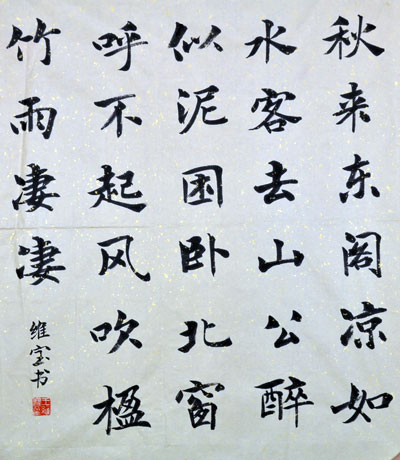 秋来东阁凉如
水客去山公醉
似泥困卧北窗
呼不起风吹楹
竹雨凄凄
维宝书